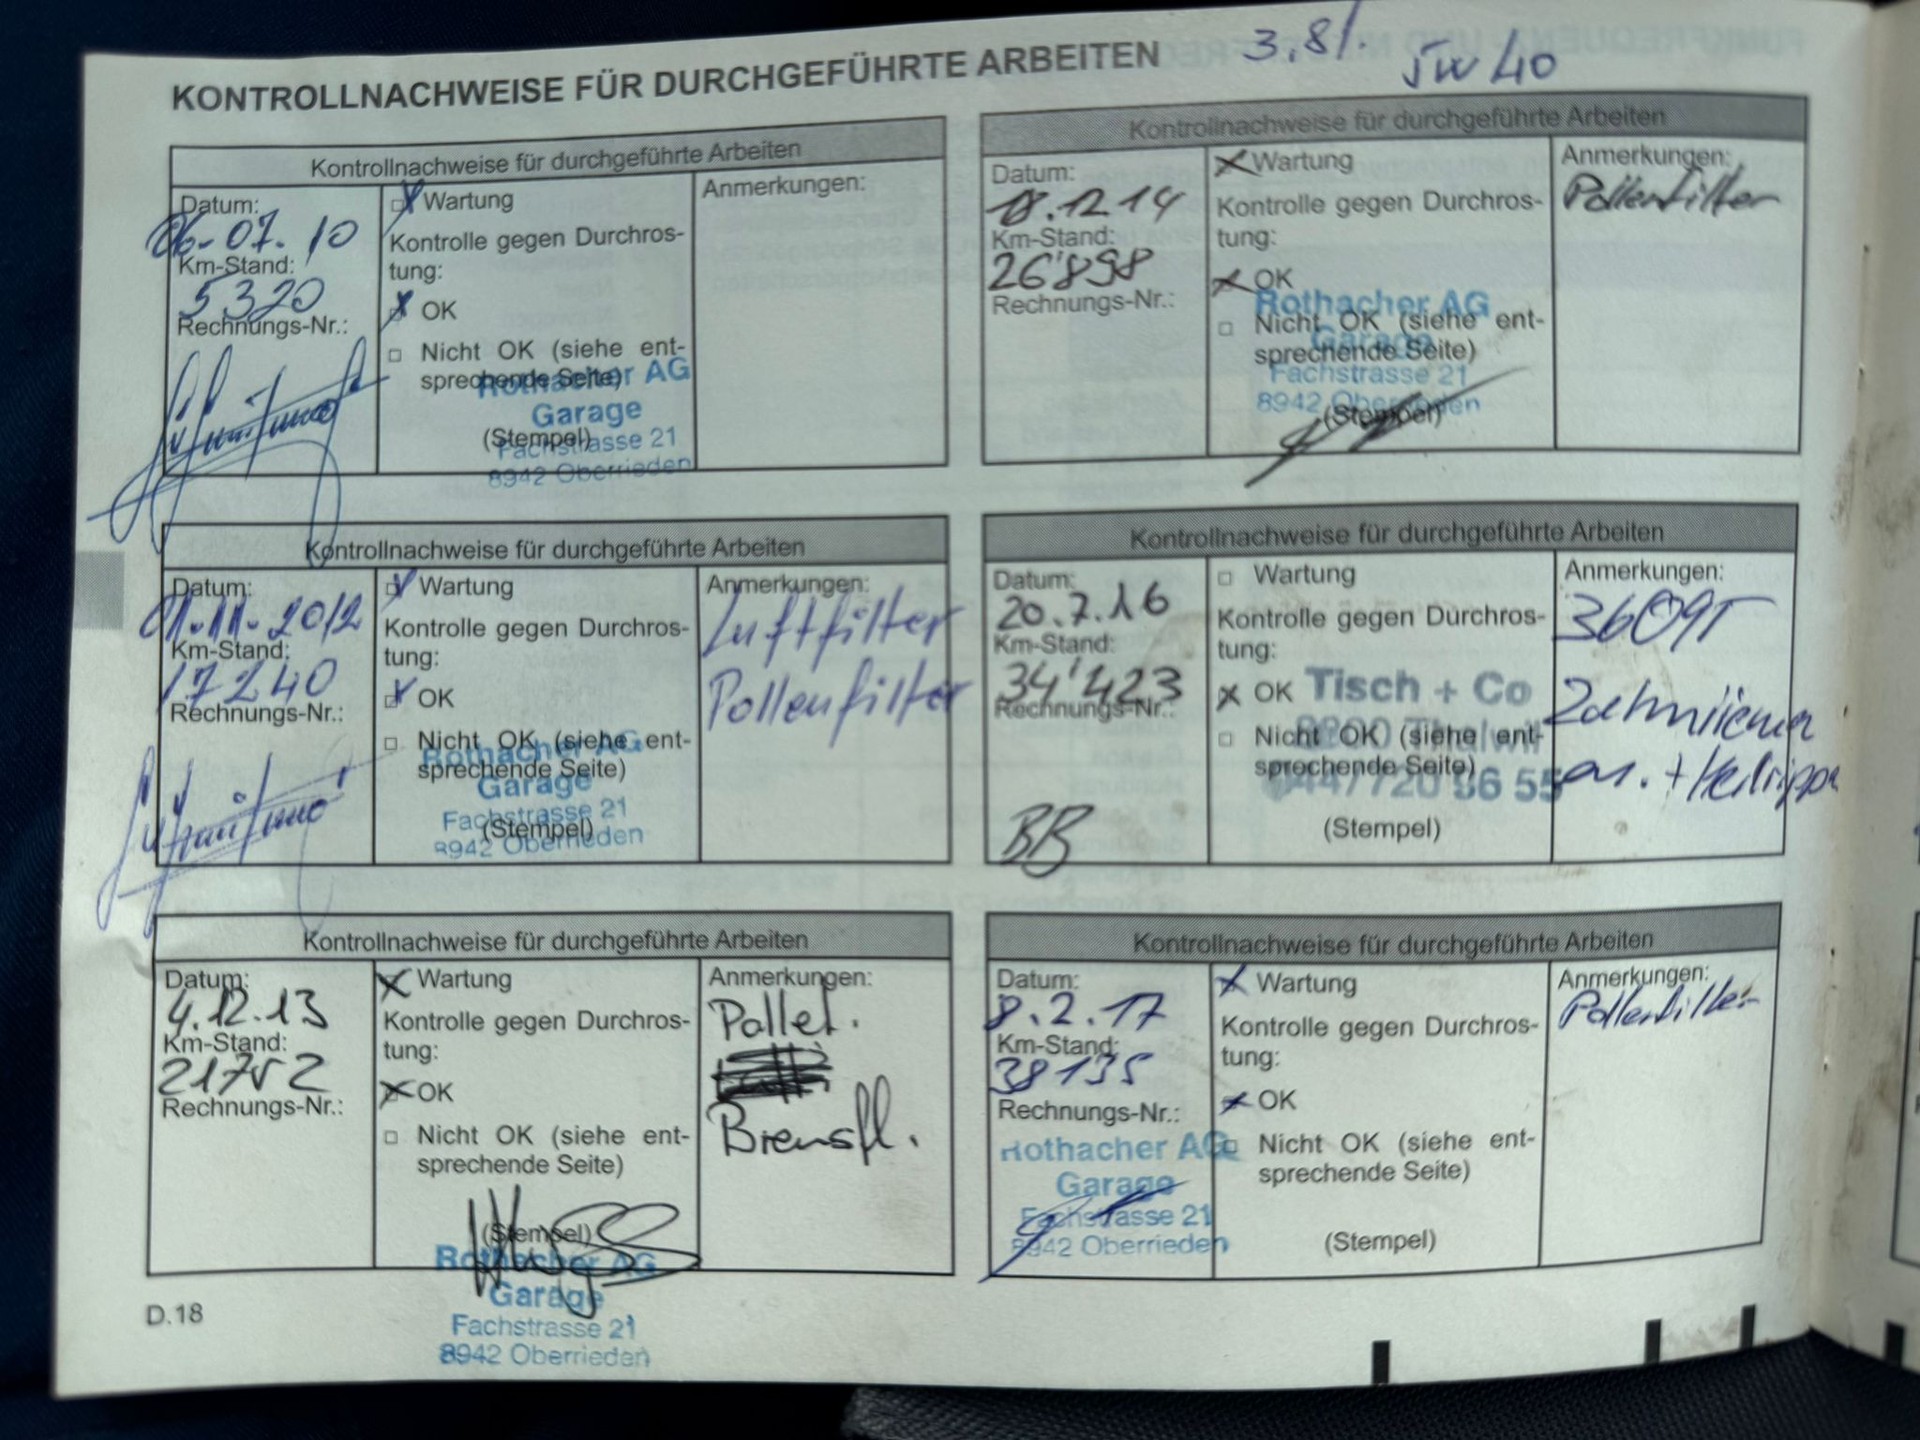 KONTROLLNACHWEISE FÜR DURCHGEFÜHRTE ARBEITEN
3,8l.
5W40
Kontrollnachweise für durchgeführte Arbeiten
Datum:
06-07.10
Km-Stand:
5320
Rechnungs-Nr.:
Wartung
Kontrolle gegen Durchros-
tung:
OK
Nicht OK (siehe ent-
sprechende Seite)
(Stempel)
Rothacher AG
Garage
Fachstrasse 21
8942 Oberrieden
Anmerkungen:
Kontrollnachweise für durchgeführte Arbeiten
Datum:
.12.14
Km-Stand:
26'898
Rechnungs-Nr.:
Wartung
Kontrolle gegen Durchros-
tung:
OK
Nicht OK (siehe ent-
sprechende Seite)
(Stempel)
Rothacher AG
Garage
Fachstrasse 21
8942 Oberrieden
Anmerkungen:
Pollenfilter
Kontrollnachweise für durchgeführte Arbeiten
Datum:
01.11.2012
Km-Stand:
17240
Rechnungs-Nr.:
Wartung
Kontrolle gegen Durchros-
tung:
OK
Nicht OK (siehe ent-
sprechende Seite)
(Stempel)
Rothacher AG
Garage
Fachstrasse 21
8942 Oberrieden
Anmerkungen:
Luftfilter
Pollenfilter
Kontrollnachweise für durchgeführte Arbeiten
Datum:
20.7.16
Km-Stand:
34'423
Rechnungs-Nr.:
BB
Wartung
Kontrolle gegen Durchros-
tung:
OK
Nicht OK (siehe ent-
sprechende Seite)
(Stempel)
Tisch + Co
8800 Thalwil
044/720 96 55
Anmerkungen:
Zahnriemen
Kontrollnachweise für durchgeführte Arbeiten
Datum:
4.12.13
Km-Stand:
21752
Rechnungs-Nr.:
Wartung
Kontrolle gegen Durchros-
tung:
OK
Nicht OK (siehe ent-
sprechende Seite)
(Stempel)
Rothacher AG
Garage
Fachstrasse 21
8942 Oberrieden
Anmerkungen:
Pollef.
Bremsfl.
Kontrollnachweise für durchgeführte Arbeiten
Datum:
8.2.17
Km-Stand:
38135
Rechnungs-Nr.:
Rothacher AG
Garage
Fachstrasse 21
8942 Oberrieden
Wartung
Kontrolle gegen Durchros-
tung:
OK
Nicht OK (siehe ent-
sprechende Seite)
(Stempel)
Anmerkungen:
Pollenfilter
D.18